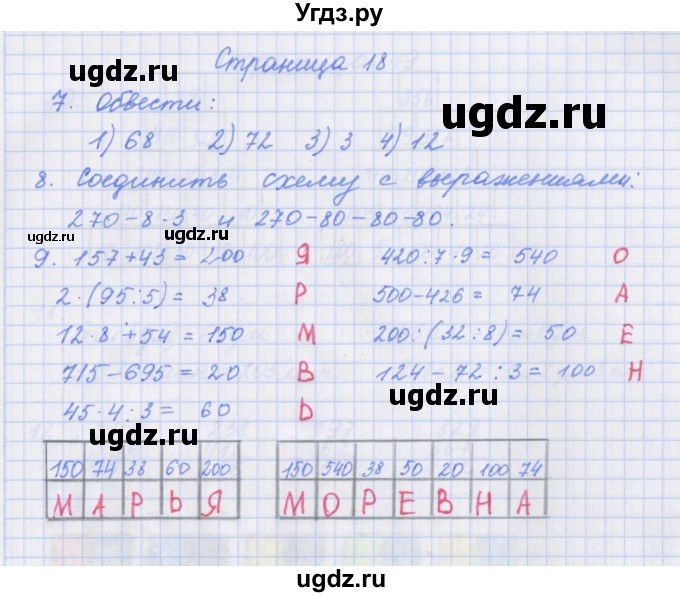 Угдз.ру
Страница 18
ugdz.ru
ugdz.ru
7. Обвести:
1) 68 2) 72 3) 3 4) 12
8. Соединить схему с выражениями:
270-8·3 и 270-80-80-80.
ugdz.ru ugdz.ru
9. 157+43= 200 Я 420:7·9= 540 О
2·(95:5)= 38 Р 500-426= 74 А
12·8+54=150 М 200:(32:8)= 50 Е
715-695=20 В 124-72:3=100 Н
ugdz.ru
45·4:3= 60 Ь
ugdz.ru
150 74 38 60 200 150 540 38 50 20 100 74
М А Р Ь Я М О Р Е В Н А
ugdz.ru
ugdz.ru